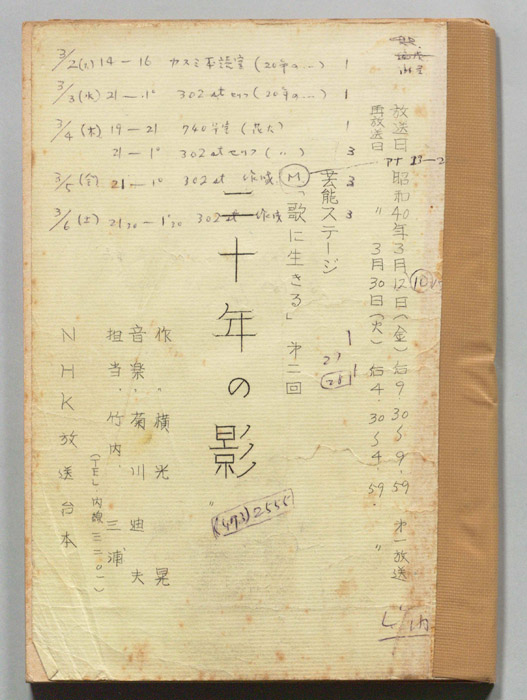 3/2(火) 14－16 カスミ本読室(20年の…) 1
3/3(水) 21－1° 302st セリフ(20年の…) 1
3/4(木) 19－21 740号室(花火) 1
21－1° 302st セリフ(〃) 3
3/5(金) 21－1° 302st 作成 3
3/6(土) 21 30－1°30 302st 作成 3
放送日 昭和40年3月12日(金)后9.30～9.59 第一放送
再放送日 〃 3月30日(火)后4.30～4.59. 〃
芸能ステージ
M
「歌に生きる」 第二回
27
28
二十年の影
(473)2555
作. 横光 晃
音楽. 菊川 迪夫
担当. 竹内、三浦
(TEL 内線 三二〇一)
NHK放送台本